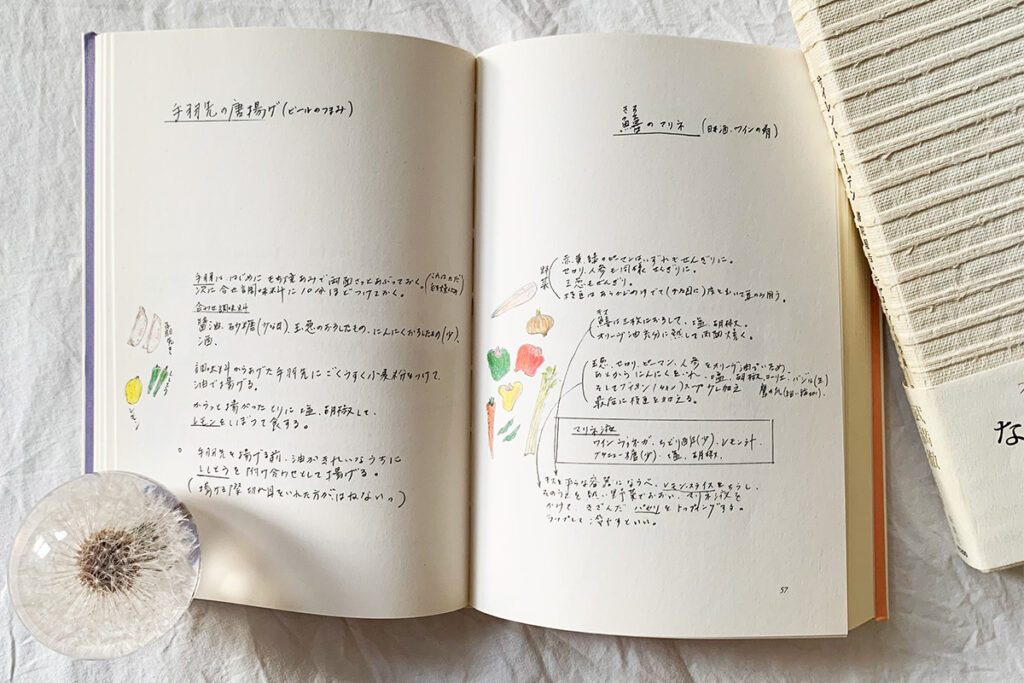 手羽先の唐揚げ(ビールのつまみ)
手羽は、はじめに もち焼あみで両面さっとあぶっておく。
次に合せ調味料に10分ほどつけておく。
合わせ調味料
醤油、砂糖(少々)、玉葱のおろしたもの、にんにくおろしたもの(少)、
酒、
調味料のうあげた手羽先にごくうすく小麦粉をつけて、
油で揚げる。
からっと揚がったとりに塩、胡椒して、
レモンをしぼって食する。
手羽先を揚げる前、油がきれいなうちに
ししとうを付け合わせとして揚げる。
(揚げる際切れ目をいれた方がはねない)
手羽先
レモン
ししとう
きす
鱚のマリネ(日本酒、ワインの肴)
野菜
赤、黄、緑のピーマンはいずれもせんぎりに。
セロリ、人参も同様せんぎりに。
玉葱もせんぎり。
きす
鱚は三枚におろして、塩、胡椒。
オリーヴ油で充分に熱して両面焼く。
玉葱、セロリ、ピーマン、人参をオリーヴ油でいため、
塩、胡椒、ローリエ、バジル(生)
鷹の爪
最后に枝豆を加える。
マリネ液
ワインヴィネガー、しょう油(少)、レモン汁
グラニュー糖(少)、塩、胡椒、
きすを平らな容器にならべ、レモンスライスをちらし、
その上を熱い野菜でおおい、マリネ液を
かけて、きざんだパセリをトッピングする。
ラップして冷やすといい。
57
な